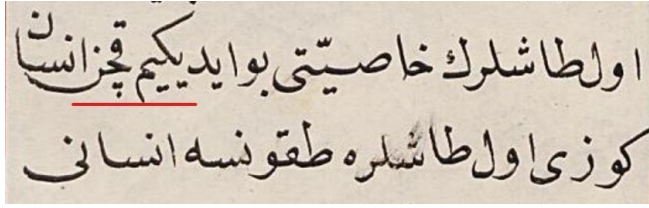 اول طاشلرك خاصيّتى بو ايديكيم قچن انسان
كوزى اول طاشلره طقونسه انسانى